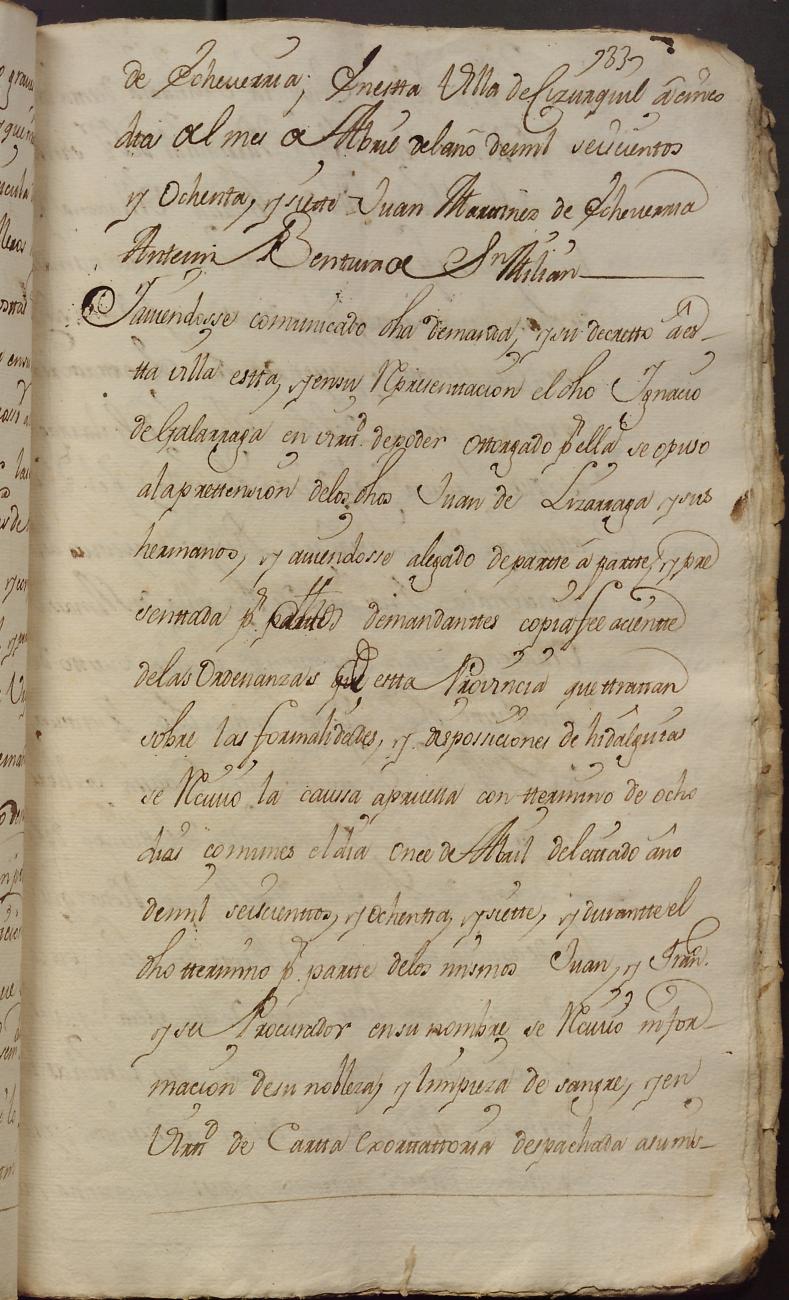 183
de Echeverria; Enestta Villa de Cizurquil a cinco
dia del mes de Abril del año de mil seiscientos
y Ochenta, y siette Juan Marttinez de Echeverria
Antemi Bentura de Sn Millan
Y aviendosse comunicado dha demanda, y su decretto a es-
tta villa estta, y en su Representtacion el dho Ignacio
de Galarraga en virttd de poder ottorgado pr ella se opuso
a la prettension de los dhos Juan de Lizarraga y sus
hermanos, y aviendosse alegado de partte a partte, y pre
senttada pr parttes demandanttes copia feeacientte
de las Ordenanzas de estta Provincia que ttrattan
sobre las formalidades, y disposiciones de hidalguias
se Recivio la caussa a prueva con ttermino de ocho
dias comunes el dia once de Abril del cittado año
de mil seiscienttos, y ochentta, y siette, y durantte el
dho ttermino pr partte de los mismos Juan, y Frann.
y su Procurador en su nombre se Recivio infor-
macion de su nobleza, y limpieza de sangre, y en
Virttd de Cartta Exorttattoria despachada a sumis-